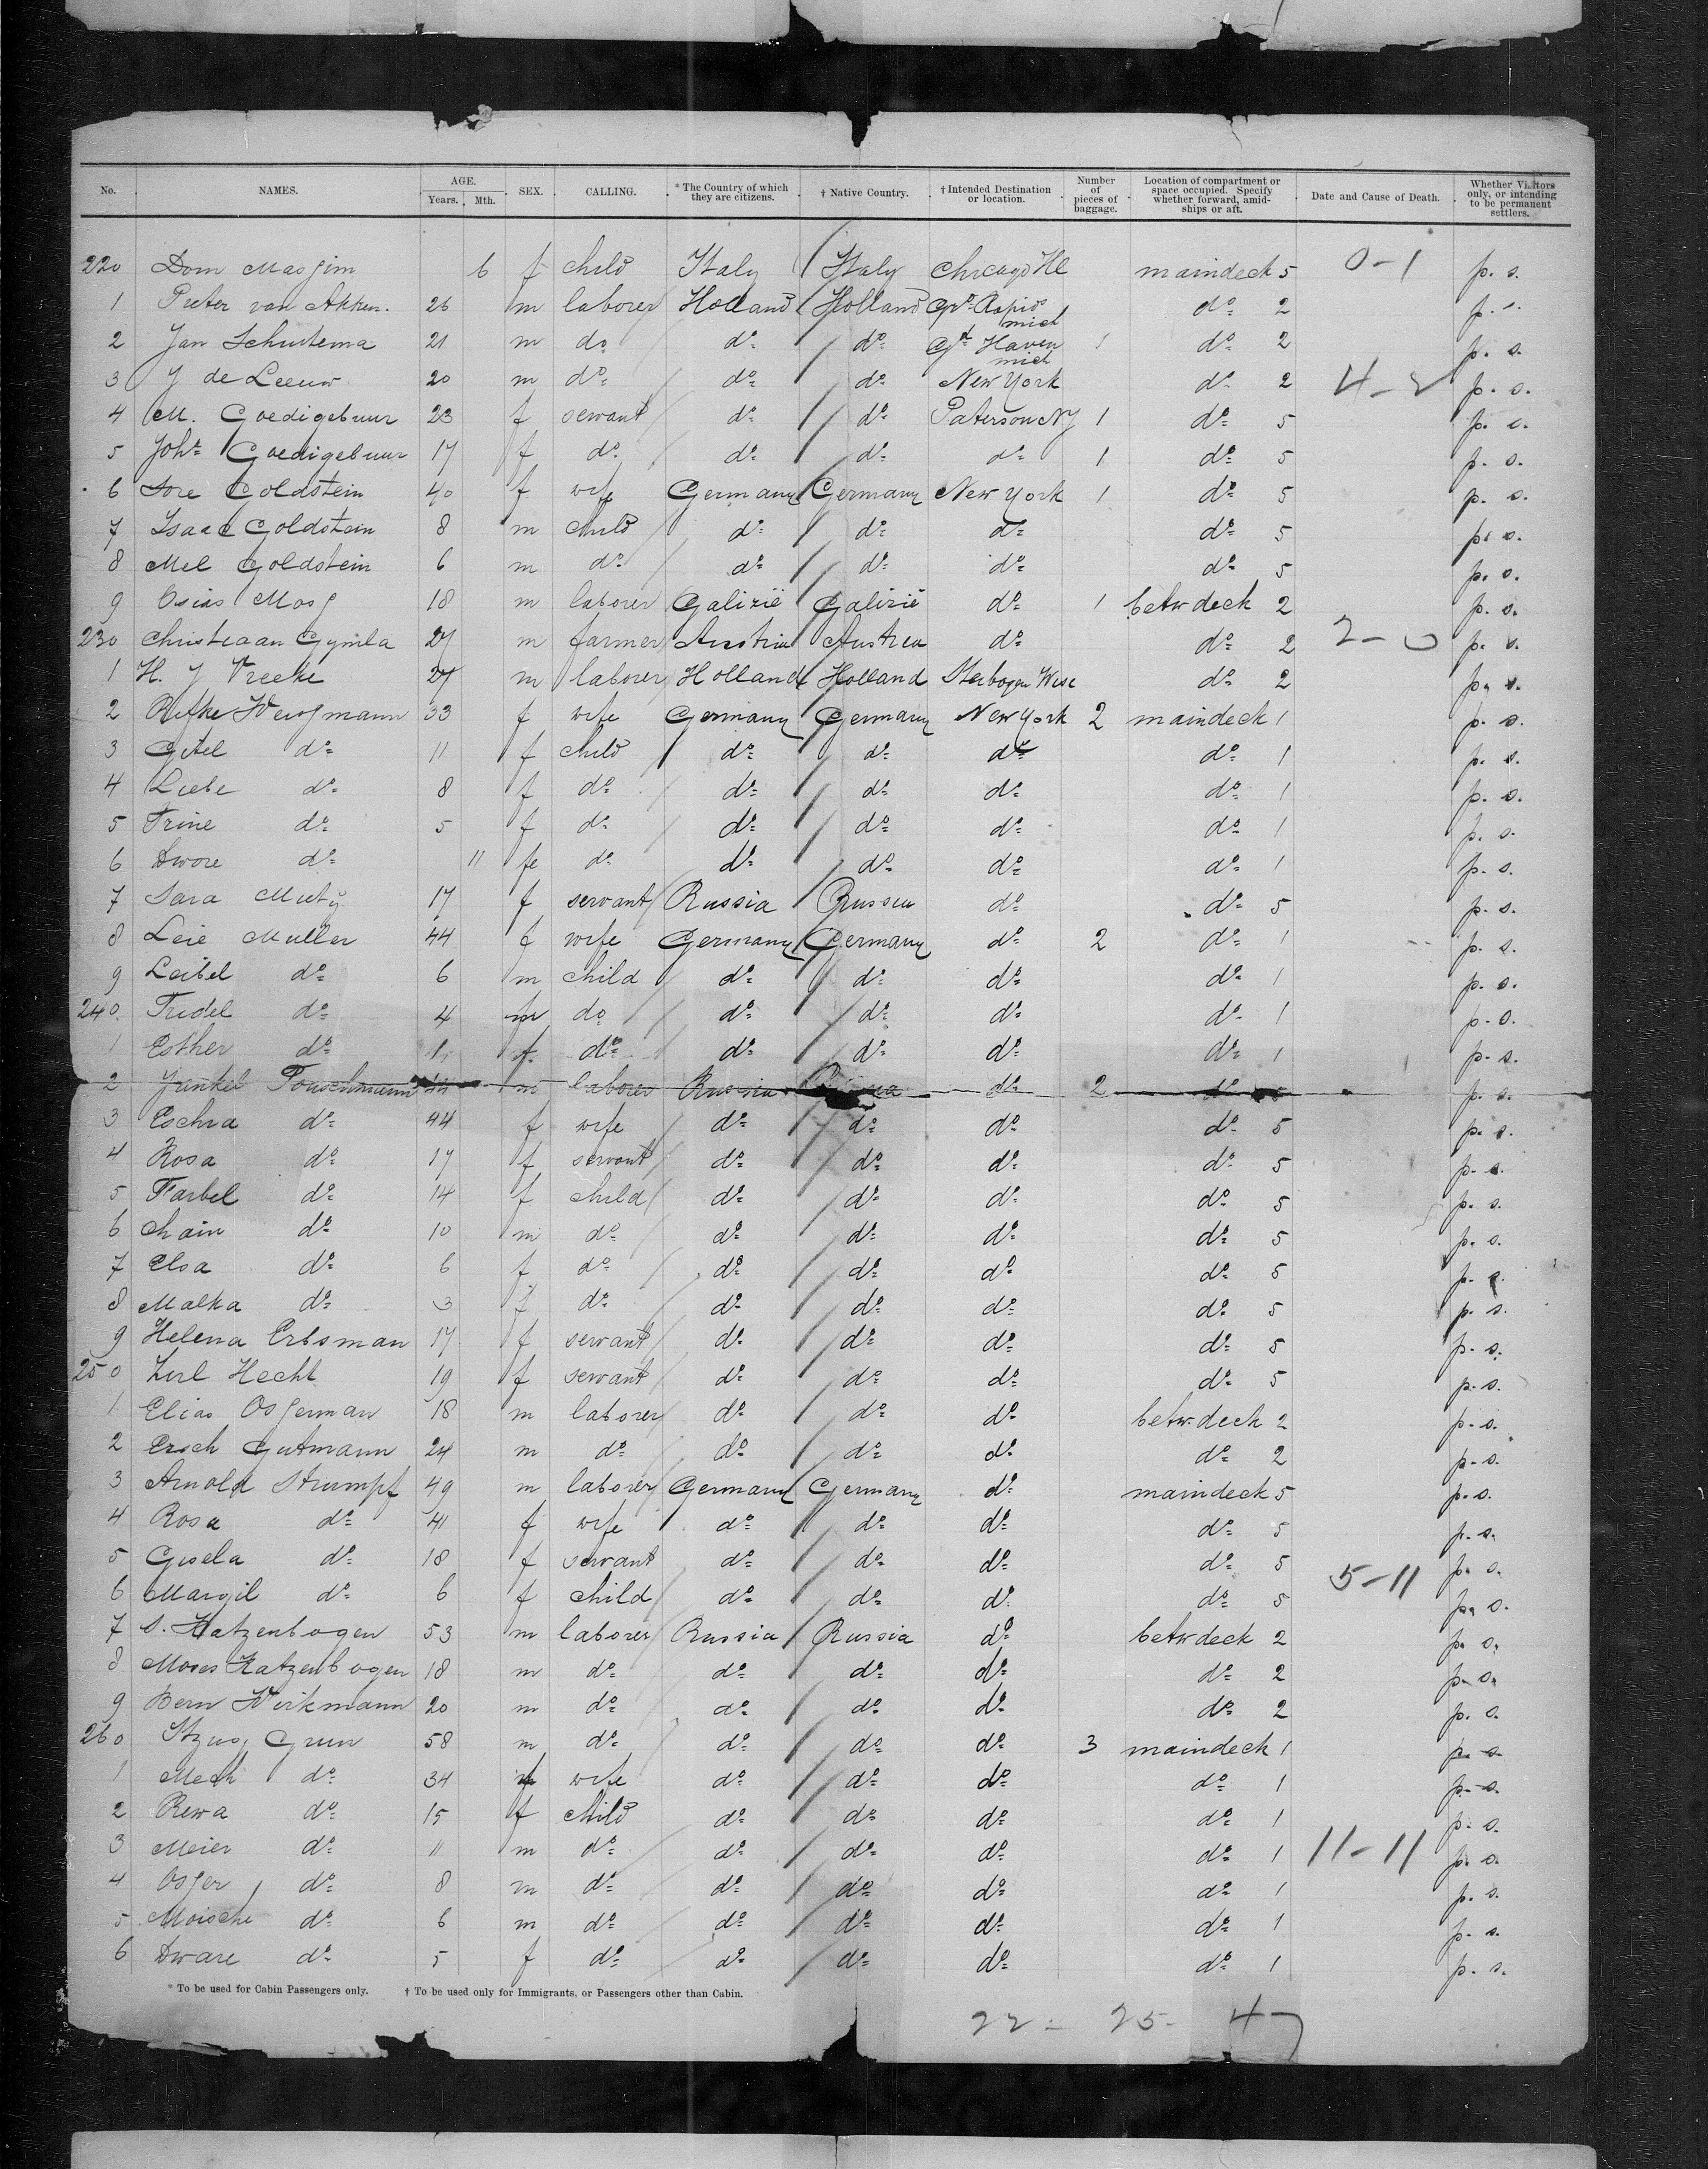 No. NAMES. AGE. Years. Mth. SEX. CALLING. * The Country of which they are citizens. † Native Country. † Intended Destination or location. Number of pieces of baggage. Location of compartment or space occupied. Specify whether forward, amidships or aft. Date and Cause of Death. Whether Visitors only, or intending to be permanent settlers.
220 Dom Masjim 6 f child Italy Italy Chicago Ill maindeck 5 0-1 p. s.
1 Pieter van Akken. 26 m laborer Holland Holland Gr. Rapids mich do 2 p. s.
2 Jan Schuitema 21 m do do do Gd Haven mich 1 do 2 p. s.
3 J de Leeuw 20 m do do do New York do 2 4-2 p. s.
4 M. Goedigebuur 23 f servant do do Paterson NJ 1 do 5 p. s.
5 Joha Goedigebuur 17 f do do do do 1 do 5 p. s.
6 Sore Goldstein 40 f wife Germany Germany New York 1 do 5 p. s.
7 Isaac Goldstein 8 m child do do do do 5 p. s.
8 Mel Goldstein 6 m do do do do do 5 p. s.
9 Osias Mosj 18 m laborer Galizië Galizië do 1 betw deck 2 p. s.
230 Christiaan Gymla 27 m farmer Austria Austria do do 2 2-0 p. s.
1 H. J Vreeke 27 m laborer Holland Holland Sterbogen Wisc do 2 p. s.
2 Rifke 33 f wife Germany Germany New York 2 maindeck 1 p. s.
3 Gitel do 11 f child do do do do 1 p. s.
4 Liebe do 8 f do do do do do 1 p. s.
5 Trine do 5 f do do do do do 1 p. s.
6 Dwore do 11 fe do do do do do 1 p. s.
7 Sara 17 f servant Russia Russia do do 5 p. s.
8 Leie Muller 44 f wife Germany Germany do 2 do 1 p. s.
9 Leibel do 6 m child do do do do 1 p. s.
240 Fridel do 4 m do do do do do 1 p. s.
1 Esther do f do do do do do 1 p. s.
2 Jankel Touschmann 44 m laborer Russia Russia do 2 do 5 p. s.
3 Eschra do 44 f wife do do do do 5 p. s.
4 Rosa do 17 f servant do do do do 5 p. s.
5 Farbel do 14 f child do do do do 5 p. s.
6 Chain do 10 m do do do do do 5 p. s.
7 Elsa do 6 f do do do do do 5 p. s.
8 Malka do 3 f do do do do do 5 p. s.
9 Helena Erbsman 17 f servant do do do do 5 p. s.
250 Zirl Hecht 19 f servant do do do do 5 p. s.
1 Elias Osjerman 18 m laborer do do do betw deck 2 p. s.
2 Ersch Gutmann 24 m do do do do do 2 p. s.
3 Arnold Strumpf 49 m laborer Germany Germany do maindeck 5 p. s.
4 Rosa do 41 f wife do do do do 5 p. s.
5 Gisela do 18 f servant do do do do 5 p. s.
6 Margil do 6 f child do do do do 5 5-11 p. s.
7 S. Katzenbogen 53 m laborer Russia Russia do betw deck 2 p. s.
8 Moses Katzenbogen 18 m do do do do do 2 p. s.
9 Bern Wirkmann 20 m do do do do do 2 p. s.
260 Grun 58 m do do do do 3 maindeck 1 p. s.
1 Mech do 34 f wife do do do do 1 p. s.
2 Rewa do 15 f child do do do do 1 p. s.
3 Meier do 11 m do do do do do 1 11-11 p. s.
4 Osjer do 8 m do do do do do 1 p. s.
5 Moische do 6 m do do do do do 1 p. s.
6 Dware do 5 f do do do do do 1 p. s.
* To be used for Cabin Passengers only. † To be used only for Immigrants, or Passengers other than Cabin.
22 - 25 - 47